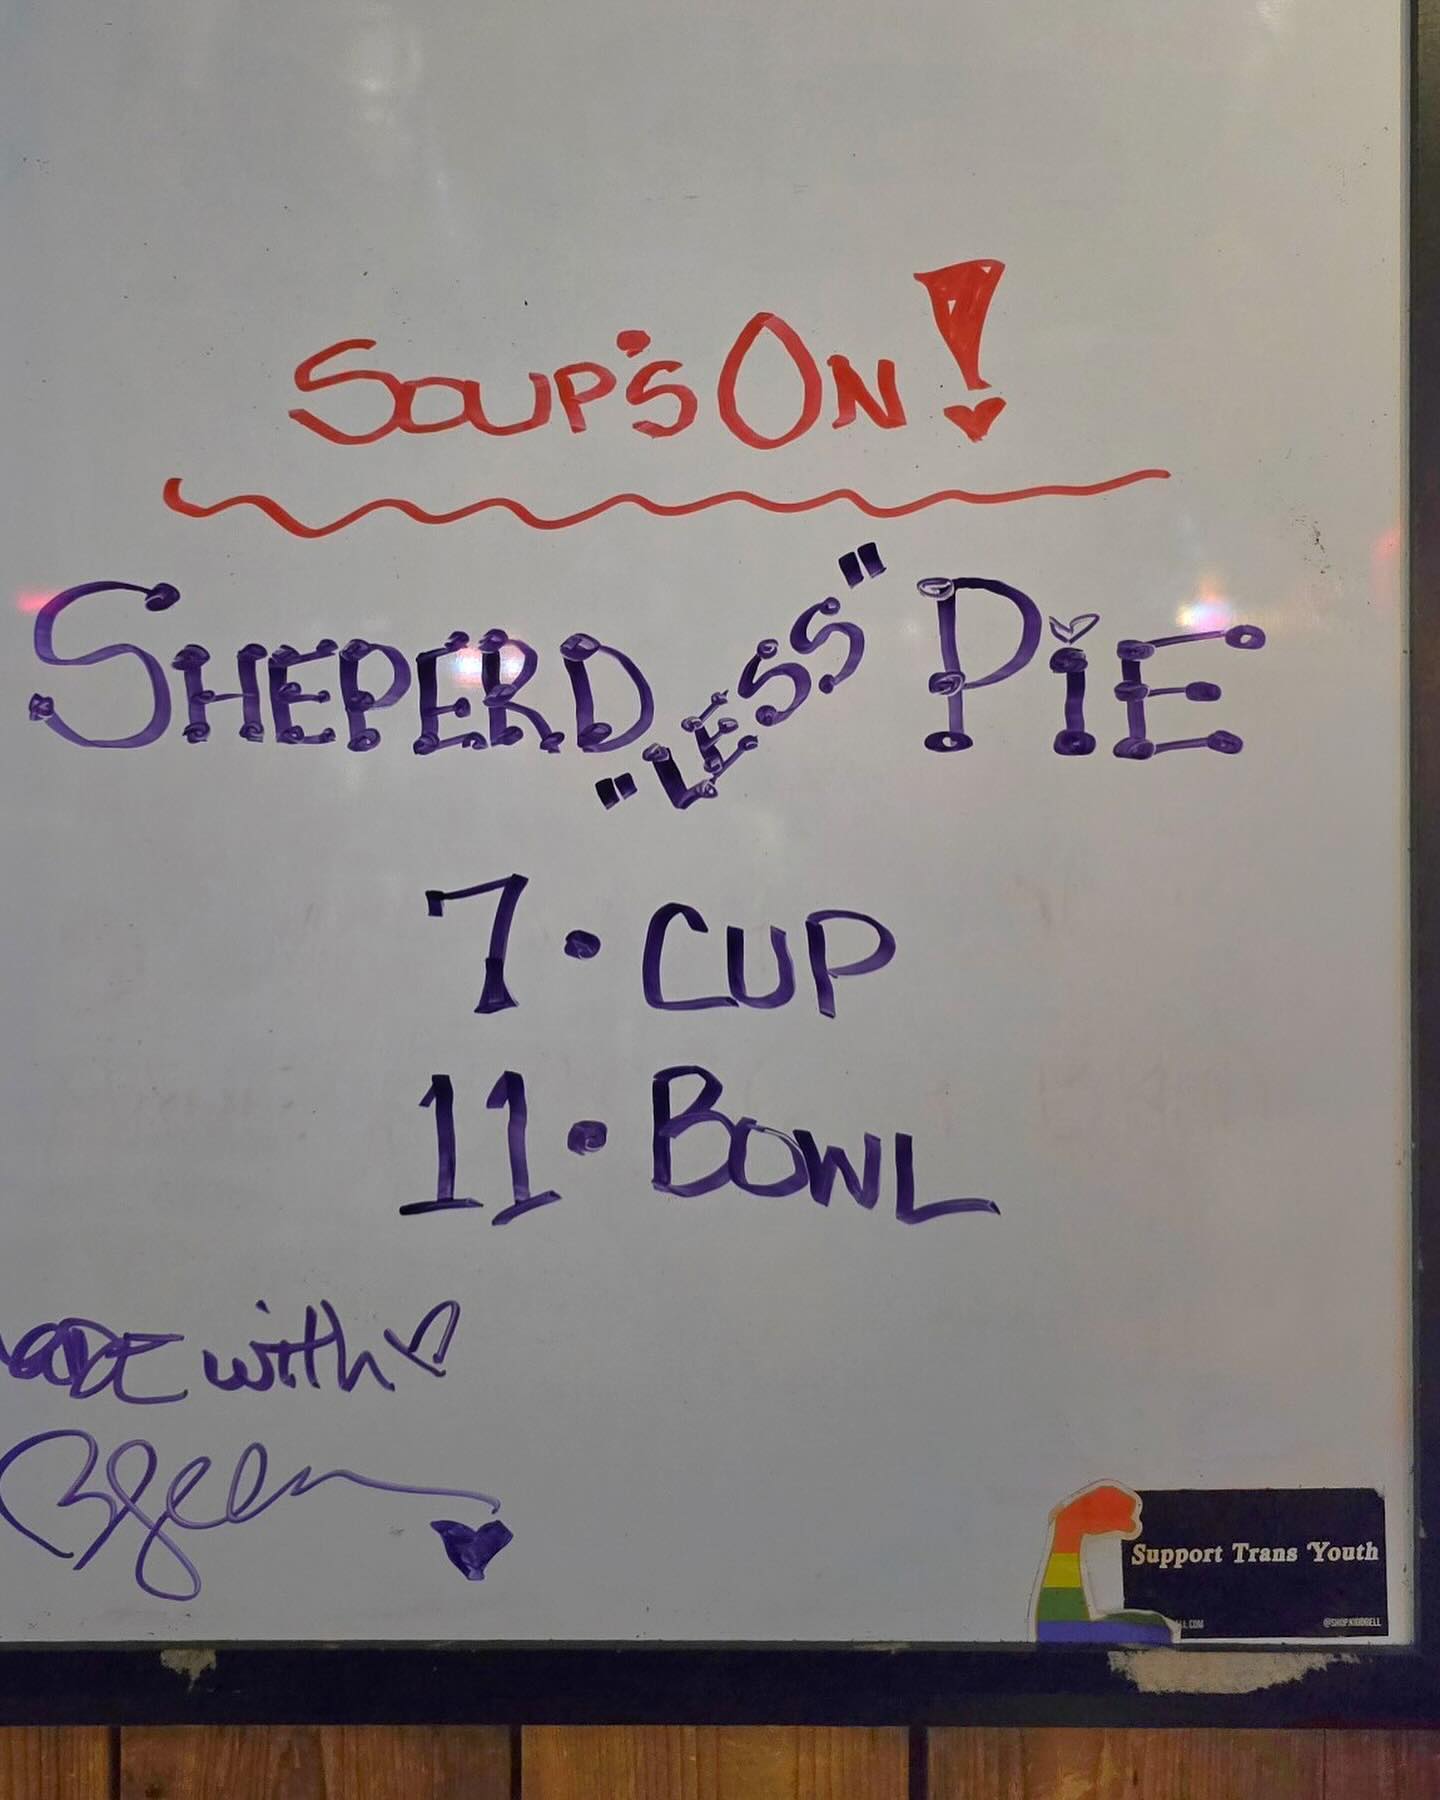 SOUP'S ON!
SHEPERD "LESS" PIE
7 • CUP
11 • BOWL
MADE with ♡
Support Trans Youth
@SHOP.KIDDBELL